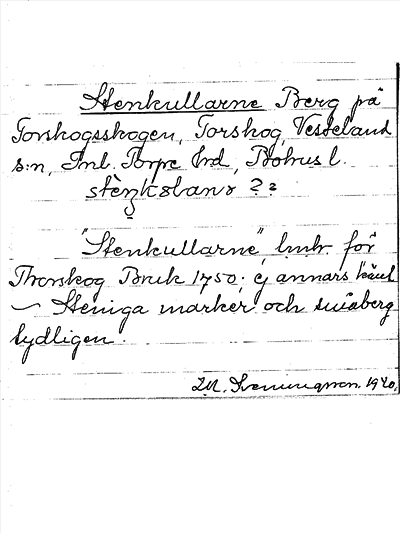 Stenkullarne Berg på
Torskogsskogen, Torskog, Vesteland
s:n, Inl. Torpe hrd, Bohus l.
"Stenkullarne" hmbr. för
Thorskog Bruk 1750; ej annars känt
– Steniga marker och småberg
tydligen.
Sveningsson. 1940.